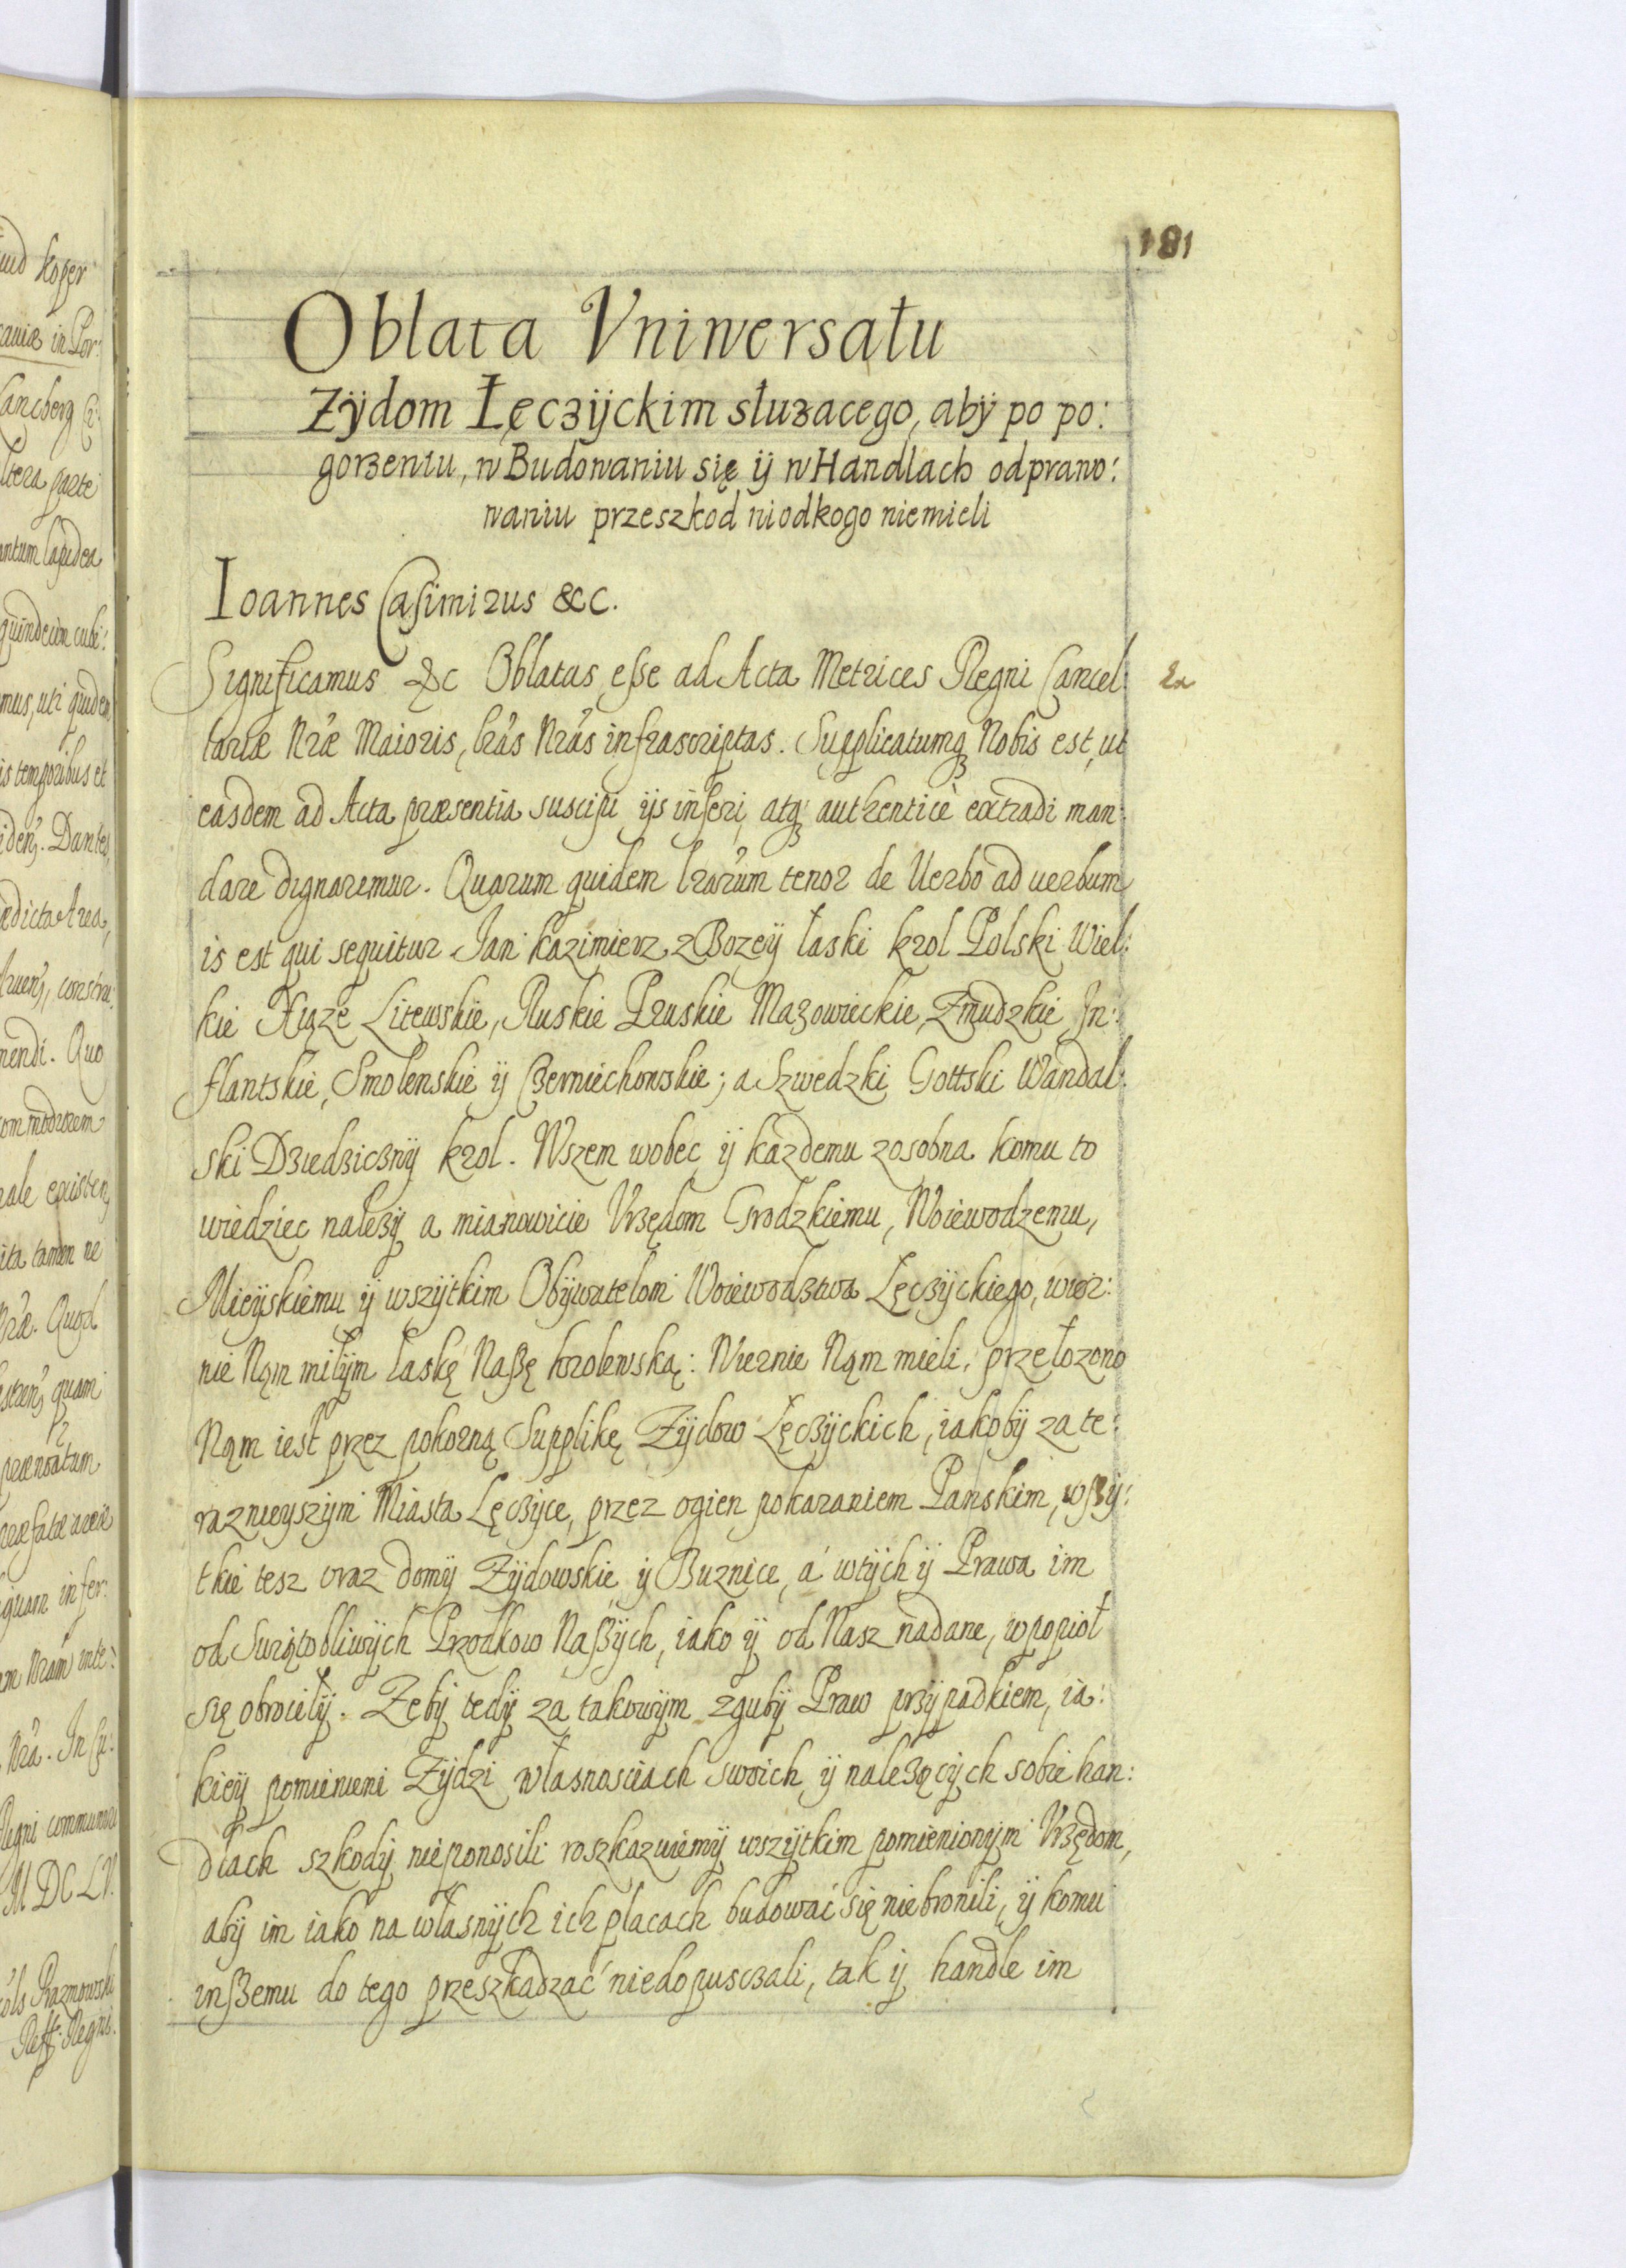 181
Oblata Vniwersału
Zÿdom Łęczÿckim słuzacego, abÿ po po:
gorzeniu, w Budowaniu się ÿ w Handlach odpraw:
waniu przeszkod niodkogo niemieli
Ioannes Casimirus &c.
Significamus &c Oblatas esse ad Acta Metrices Regni Cancel:
lariæ Nræ Maioris, lrás Nrás infrascriptas. Supplicatumq Nobis est, ut
easdem ad Acta præsentia suscipi ijs inseri, atq authenticè extradi man:
dare dignaremur. Quarum quidem lrarum tenor de Uerbo ad uerbum
is est qui sequitur Jan Kazimierz z Bozeÿ łaski krol Polski Wiel:
kie Xiąże Litewskie, Ruskie Pruskie Mazowieckie, Zmudzkie In:
flantskie, Smolenskie ÿ Czerniechowskie; a Szwedzki Gottski Wandal:
ski Dziedzicznÿ krol. Wszem wobec ÿ kazdemu zosobna komu to
wiedziec należÿ a mianowicie Vrzędom Grodzkiemu, Woiewodzemu,
Mieÿskiemu ÿ wszÿtkim Obÿwatelom Woiewodztwa Łęczÿckiego, wier:
nie Nąm miłÿm łaskę Naszę krolewską: Wiernie Nąm mieli, przełozono
Nąm iest przez pokorną Supplikę Zÿdow Łęczÿckich, iakobÿ za te:
raznieÿszÿm Miasta Łęczÿce, przez ogien pokaraniem Panskim, wszÿ:
tkie tesz oraz domÿ Zÿdowskie ÿ Buznice, á wtÿch ÿ Prawa im
od Swiątobliwÿch Przodkow Naszÿch, iako ÿ od Nasz nadane, wpopioł
się obrociłÿ. Zebÿ tedÿ za takowÿm zgubÿ Praw przÿpadkiem, ia:
kieÿ pomienieni Zÿdzi własnosciach swoich ÿ należącÿch sobie han:
dlach szkodÿ nieponosili roszkazuiemÿ wszÿtkim pomienionÿm Vrzędom,
abÿ im iako na własnÿch ich placach budować się niebronili, ÿ komu
inszemu do tego przeszkadzać niedopusczali, tak ÿ handle im